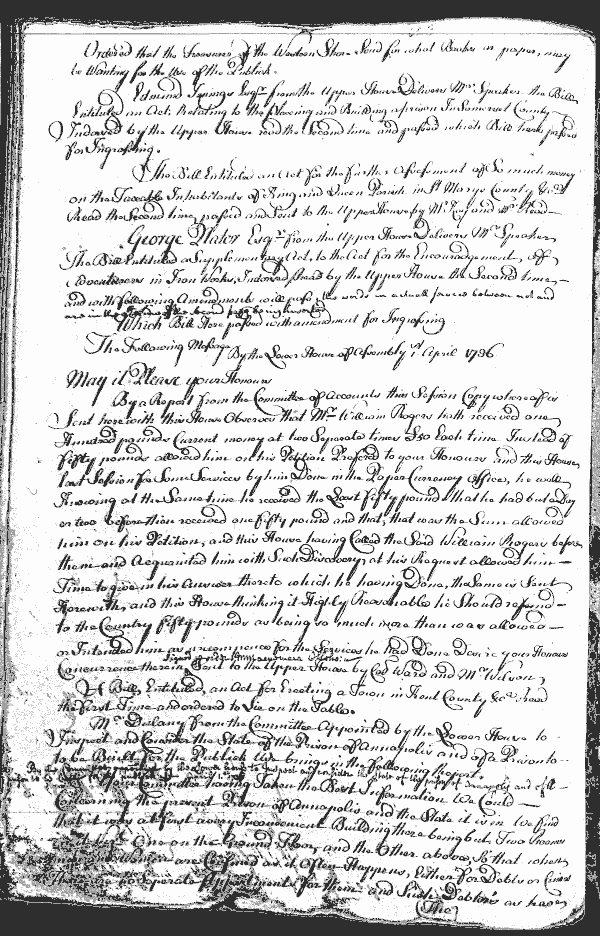 Ordered that the Treasurer of the Western Shore Send for what Books or paper, may
be Wanting for the Use of the Publick.
Edmund Jenings Esqr. from the Upper House Delivers Mr. Speaker the Bill
Entituled an Act Relating to the Standing and Building a prison in Somerset County
Indorsed by the Upper House read the Second time and passed which Bill here passed
for Ingrossing.
The Bill Entituled an Act for the further Assessment of So much money
on the Taxable Inhabitants of King and Queen Parish in St. Marys County &ca.
Read the Second time passed and Sent to the Upper House by Mr. and Mr. Read
George Plater Esqr. from the Upper House Delivers Mr. Speaker
The Bill Entituled a Supplementary Act, to the Act for the Encouragement of
Adventurers in Iron Works, Indorsed, read by the Upper House the Second time,
and with following Amendments will pass the words in a small between and and
are in the of the Second page being inserted
Which Bill Here passed with amendment for Ingrossing
The Following Message By the Lower House of Assembly 1st April 1736
May it Please your Honours
By a Report from the Committee of Accounts this Session Copy whereof is
Sent herewith this House Observes that Mr. William Rogers hath received one
Hundred pounds Current money at two Separate times £50 Each time Instead of
fifty pounds allowed him on his Petition Prefered to your Honours and this House
last Session for Some Services by him Done in the Paper Currency Office, he well
Knowing at the Same time he received the Last fifty pound that he had but a Day
or two before then received one fifty pound and that, that was the Sum allowed
him on his Petition, and this House having Called the Said William Rogers before
them and Acquainted him with Such Discovery, at his Request allowed him
Time to give in his Answer thereto which he having Done, the Same is Sent
Herewith, and this House thinking it Highly Reasonable he Should refund
to the Country fifty pounds as being so much more than was allowed
or Intended him as recompence for the Services he had Done Desire your Honours
Concurrence therein Sent to the Upper House by Col Ward and Mr. Wilson
A Bill, Entituled, an Act for Erecting a Town in Kent County &ca. read
the First Time and ordered to Lie on the Table.
Mr. Dulany from the Committee Appointed by the Lower House to
Inspect and Consider the State of the Prison of Annapolis and of a Prison to
to be Built for the Publick Use brings in the following Report
By the Committee appointed to Inspect and Consider the State of the prison of Annapolis and of
Your Committee having Taken the Best Information We Could
Concerning the present Prison of Annapolis and the State it is in We find
that it was at first a very Inconvenient Building there being but Two Rooms
One on the Ground Floor, and the Other above, So that when
Men and Women are Confined as it Often Happens, Either for Debts or Crimes
There are no Seperate Appartments for them and Such Debtors as have
(The)